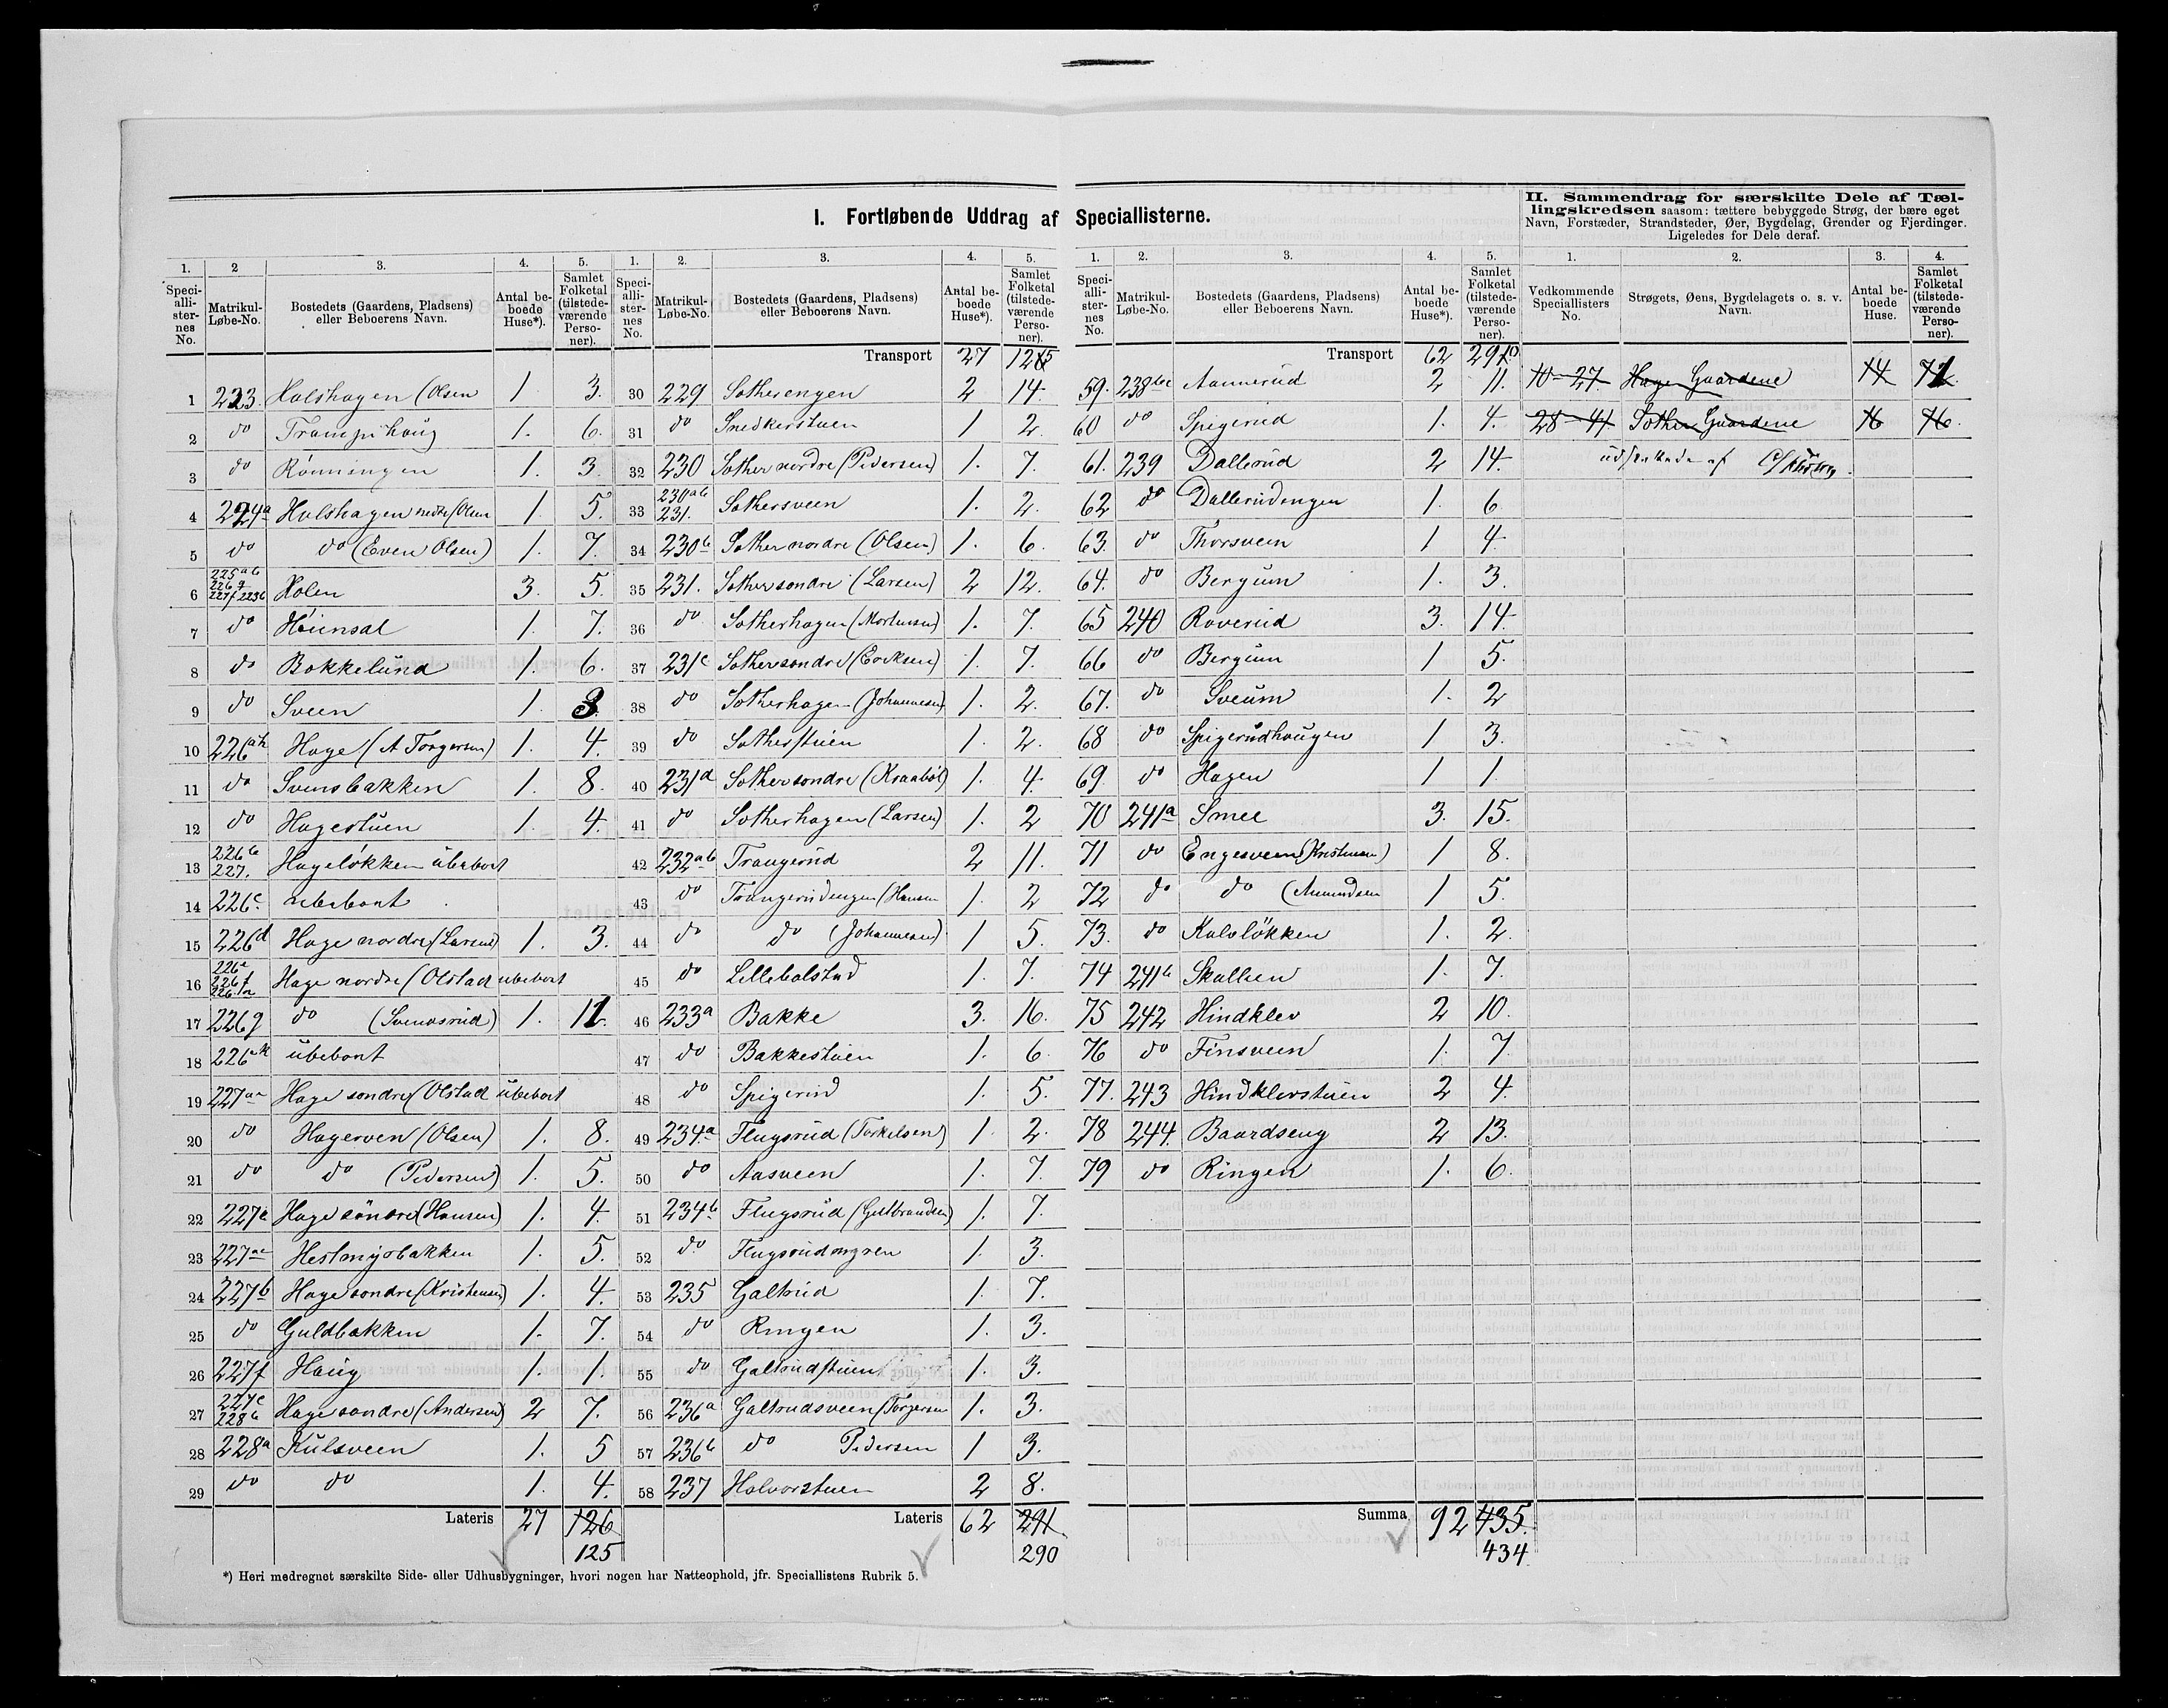 I. Fortløbende Uddrag af Speciallisterne.
II. Sammendrag for særskilte Dele af Tællingskredsen saasom: tættere bebyggede Strøg, der bære eget
Navn, Forstæder, Strandsteder, Øer, Bygdelag, Grender og Fjerdinger.
Ligeledes for Dele deraf.
1. 2 3. 4. 5.
Speciallisternes No. Matrikul-Løbe-No. Bostedets (Gaardens, Pladsens) eller Beboerens Navn. Antal beboede Huse*). Samlet Folketal (tilstedeværende Personer).
1 223. Holshagen (Olsen 1 3.
2 do Trampihaug 1. 6.
3 do Rönningen 1. 3.
4 224a Holshagen nedre (Olsen 1. 5.
5 do do (Even Olsen) 1. 7.
6 225ab 226 227f 223b Holen 3. 5.
7 do Heimsal 1. 7.
8 do Bakkelund 1. 6.
9 do Sveen 1. 3.
10 226ah Hage (A Torgersen) 1. 4.
11 do Svensbakken 1. 8.
12 do Hagestuen 1. 4.
13 226b 227. Hagelökken ubebort
14 226c. ubebort
15 226d Hage nordre (Larsen) 1. 3.
16 226e 226f Hage nordre (Olstad ubebort
17 226g do (Svendsrud) 1. 11.
18 226k ubebont
19 227a Hage sondre (Olstad ubebort
20 do Hagerven (Olsen) 1. 8.
21 do do (Pedersen) 1. 5.
22 227 Hage söndre (Hansen) 1. 4.
23 227 Hestmyrbakken 1. 5.
24 227b Hage sondre (Kristensen) 1. 4.
25 do Guldbakken 1. 7.
26 227f Haug 1. 1.
27 227c 228b Hage sondre (Andersen) 2 7.
28 228a Kulsveen 1. 5
29 do do 1. 4.
Lateris 27 126
125
1. 2. 3. 4. 5.
Speciallisternes No. Matrikul-Løbe-No. Bostedets (Gaardens, Pladsens) eller Beboerens Navn. Antal beboede Huse*). Samlet Folketal (tilstedeværende Personer).
Transport 27 125
30 229 Sotherengen 2 14.
31 do Snedkerstuen 1 2.
32 230 Sother nordre (Pedersen) 1. 7.
33 230ab 231. Sothersveen 1. 2.
34 230b Sother nordre (Olsen) 1. 6.
35 231. Sother sondre (Larsen) 2 12.
36 do Sotherhagen (Mortensen) 1. 7.
37 231c Sother sondre (Eriksen) 1. 7.
38 do Sotherhagen (Johannesen) 1. 2.
39 do Sotherstuen 1. 2.
40 231d Sother sondre (Kraaböl) 1. 4.
41 do Sotherhagen (Larsen) 1. 2
42 232ab Trangerud 2 11.
43 do Trangerudengen (Hansen 1. 2
44 do do (Johannesen) 1 5.
45 do Lillebalstad 1. 7.
46 233a Bakke 3. 16.
47 do Bakkestuen 1. 6.
48 do Spigerud 1. 5.
49 234.a Flugsrud (Torkelsen) 1. 2.
50 do Aasveen 1. 7.
51 234b Flugsrud (Gulbrandsen) 1. 7.
52 do Flugsrudengen 1. 3.
53 235 Galtrud 1. 7.
54 do Ringen 1. 3.
55 do Galtrudstuen 1. 3.
56 236a Galtrudsveen (Torgersen 1. 3.
57 236b do Pedersen 1 3.
58 237 Halvorstuen 2 8.
Lateris 62 291
290
1. 2. 3. 4. 5.
Speciallisternes No. Matrikul-Løbe-No. Bostedets (Gaardens, Pladsens) eller Beboerens Navn. Antal beboede Huse*). Samlet Folketal (tilstedeværende Personer).
Transport 62 290
59. 238 Aannerud 2 11.
60 do Spigerud 1. 4.
61. 239 Dallerud 2 14.
62 do Dallerudengen 1. 6
63. do Thorsveen 1 4.
64. do Bergum 1. 3.
65 240 Roverud 3. 14.
66 do Bergum 1 5.
67. do Sveum 1. 2
68 do Spigerudhaugen 1 3.
69 do Hagen 1 1.
70 241a Smee 3. 15.
71 do Engesveen (Kristensen) 1 8.
72 do do (Amundsen 1 5.
73. do Kalvlökken 1. 2.
74 241b Skallien 1. 7.
75 242 Hindklev 2 10.
76 do Finsveen 1. 7
77. 243 Hindklevstuen 2 4.
78 244. Baardseng 2 13.
79 do Ringen 1. 6.
Summa 92 435.
434
1. 2. 3. 4.
Vedkommende Speciallisters No. Strøgets, Øens, Bygdelagets o. s. v. Navn. Antal beboede Huse. Samlet Folketal (tilstedeværende Personer).
10-27. Hage Gaardene 14 71.
28-41. Sother Gaardene 16 76.
*) Heri medregnet særskilte Side- eller Udhusbygninger, hvori nogen har Natteophold, jfr. Speciallistens Rubrik 5.